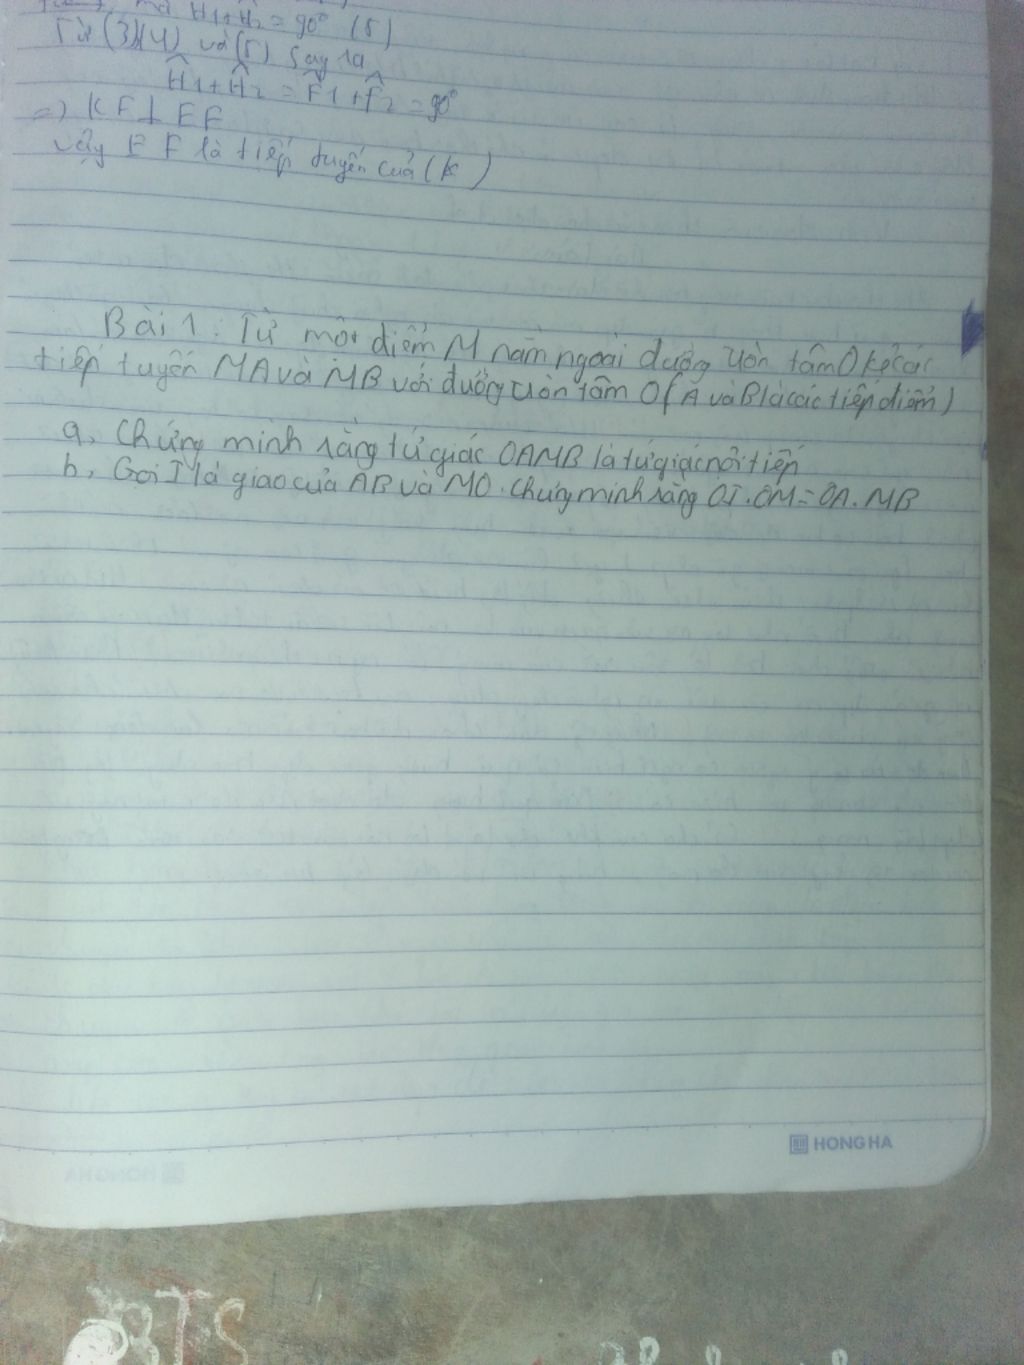 mà Ĥ1+Ĥ2 = 90° (5)
Từ (3)(4) và (5) Say ra
Ĥ1+Ĥ2 = F̂1+F̂2 = 90°
=) KF⊥ EF
Vậy EF là tiếp tuyến của (K)
Bài 1: Từ một điểm M nằm ngoài đường tròn tâm O kẻ các
tiếp tuyến MA và MB với đường tròn tâm O (A và B là các tiếp điểm)
a, Chứng minh rằng tứ giác OAMB là tứ giác nội tiếp
b, Gọi I là giao của AB và MO. Chứng minh rằng OI.OM=OA.MB
HONG HA
BTS